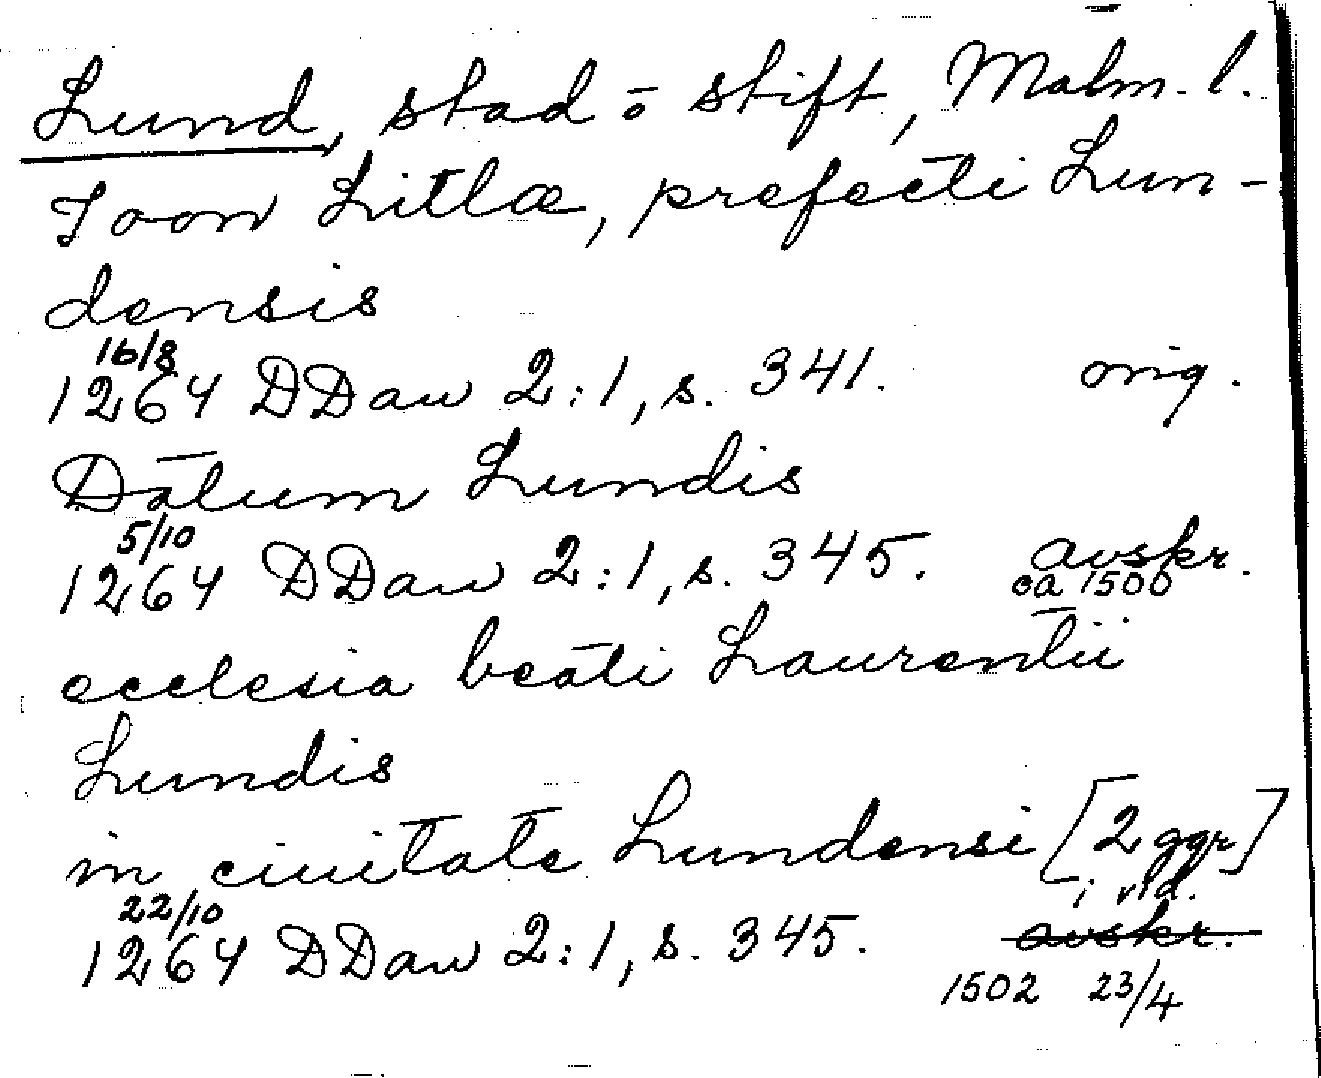 Lund, stad o stift, Malm. l.
Toon Litlæ, prefecti Lun-
densis
16/8
1264 DDan 2:1, s. 341. orig.
Datum Lundis
5/10
1264 DDan 2:1, s. 345. avskr.
ca 1500
ecclesia beati Laurentii
Lundis
in ciuitate Lundensi [2 ggr]
22/10 i vid.
1264 DDan 2:1, s. 345. avskr.
1502 23/4